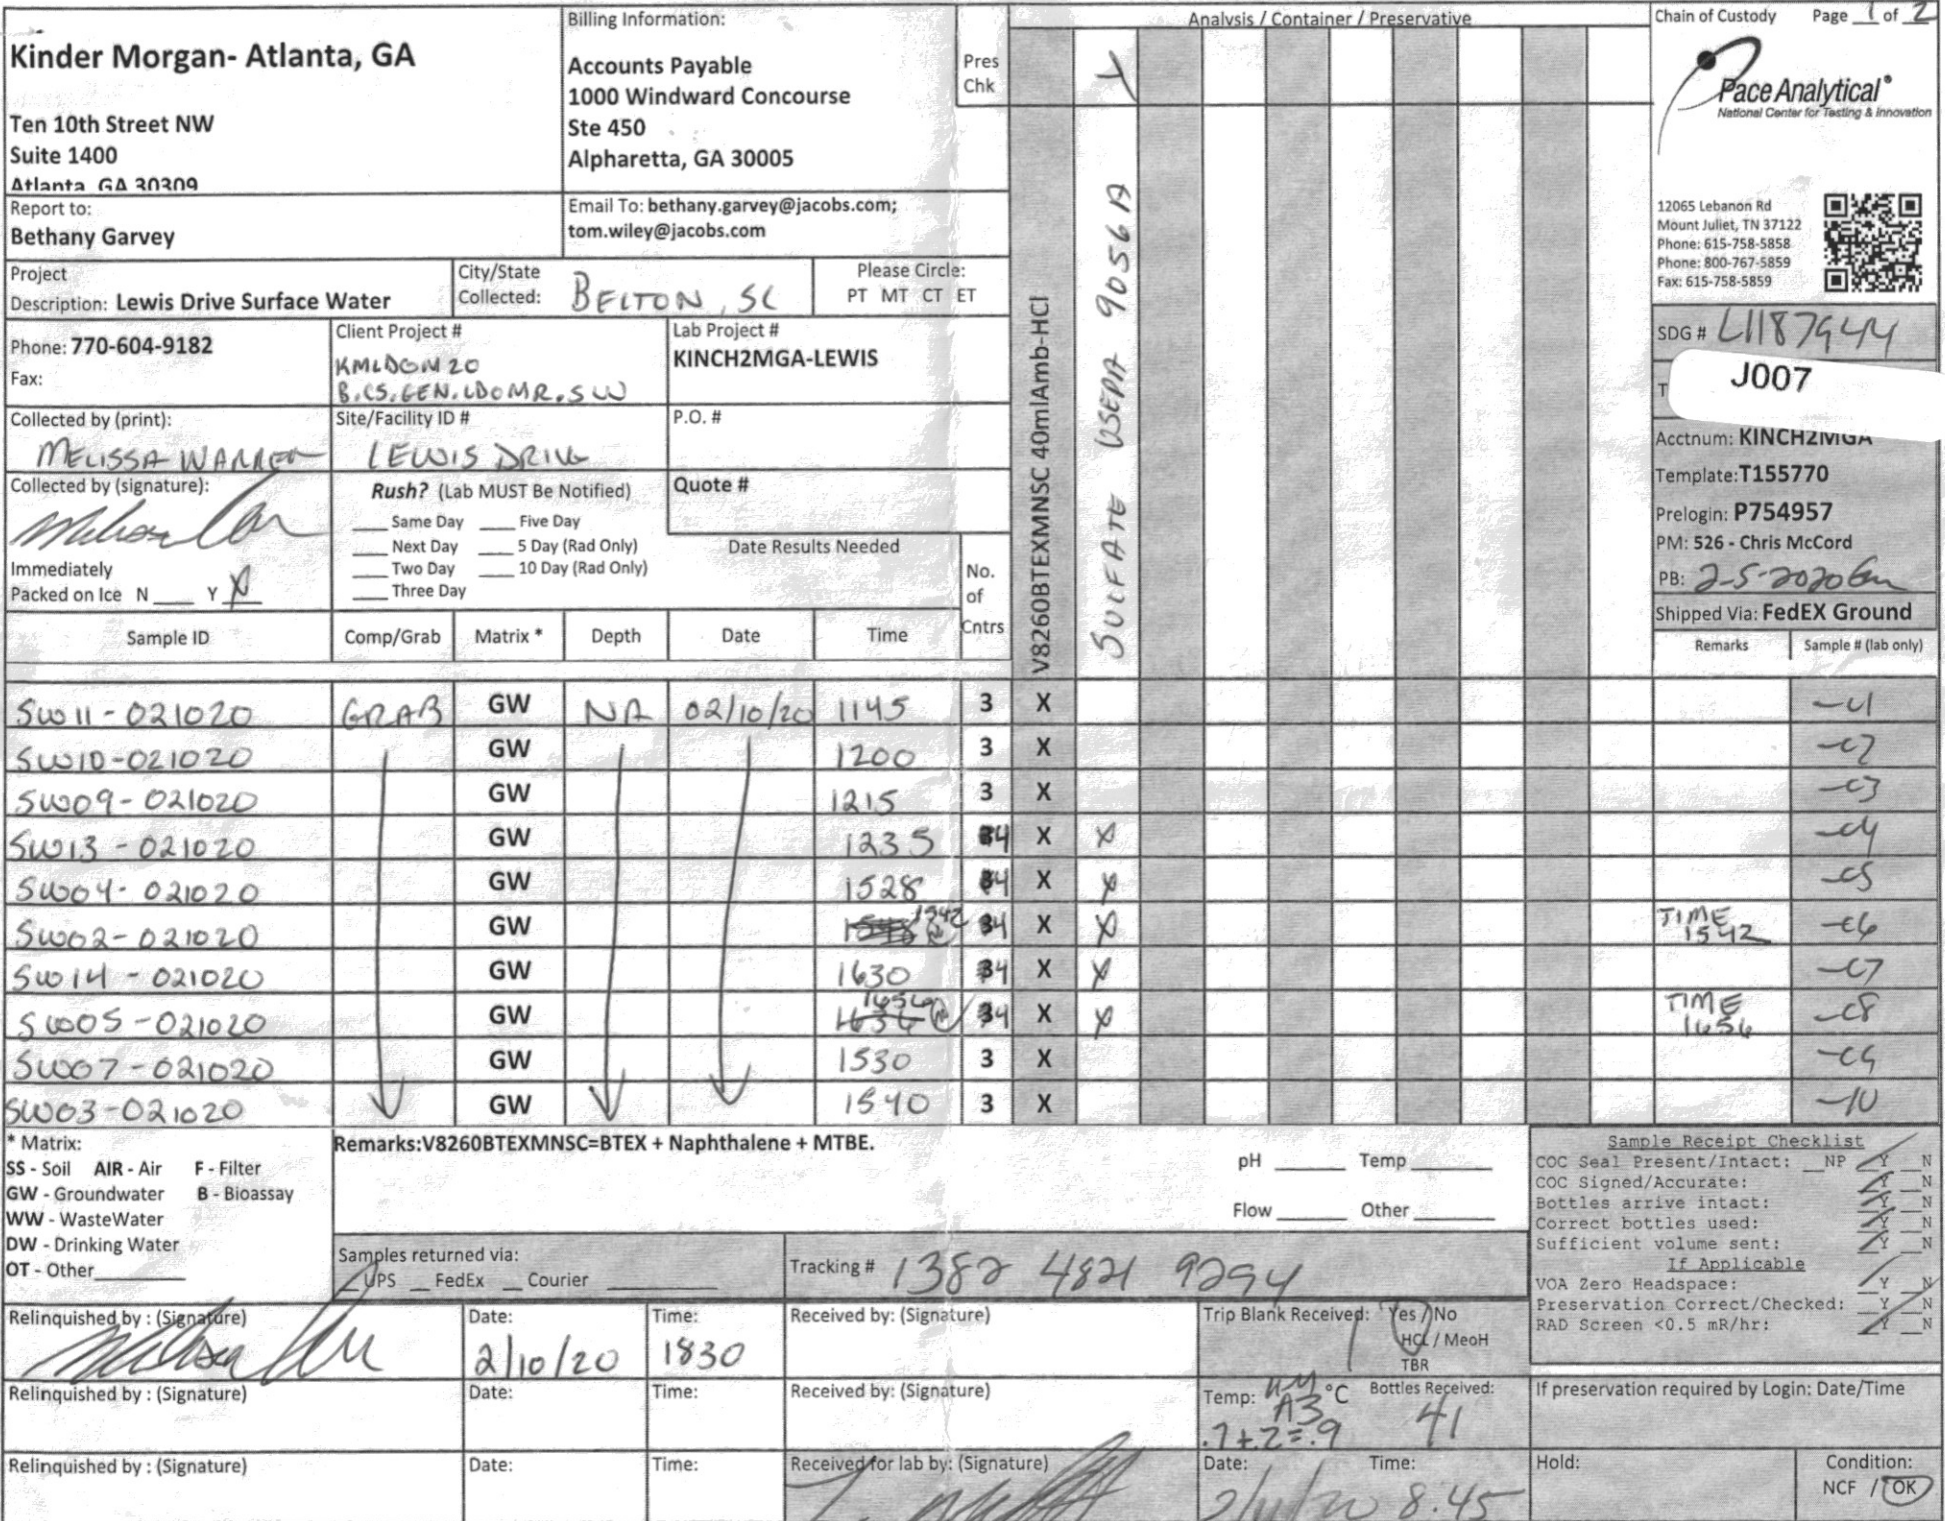 Kinder Morgan- Atlanta, GA
Ten 10th Street NW
Suite 1400
Atlanta, GA 30309
Billing Information:
Accounts Payable
1000 Windward Concourse
Ste 450
Alpharetta, GA 30005
Pres
Chk
Analysis / Container / Preservative
Y
Chain of Custody Page 1 of 2
Pace Analytical®
National Center for Testing & Innovation
12065 Lebanon Rd
Mount Juliet, TN 37122
Phone: 615-758-5858
Phone: 800-767-5859
Fax: 615-758-5859
Report to:
Bethany Garvey
Email To: bethany.garvey@jacobs.com;
tom.wiley@jacobs.com
Project
Description: Lewis Drive Surface Water
City/State
Collected: BELTON, SC
Please Circle:
PT MT CT ET
Phone: 770-604-9182
Fax:
Client Project #
KMLDOM20
B.CS.GEN.LDOMR.SW
Lab Project #
KINCH2MGA-LEWIS
Collected by (print):
MELISSA WARREN
Site/Facility ID #
LEWIS DRIVE
P.O. #
Collected by (signature):
Immediately
Packed on Ice N ___ Y X
Rush? (Lab MUST Be Notified)
___ Same Day ___ Five Day
___ Next Day ___ 5 Day (Rad Only)
___ Two Day ___ 10 Day (Rad Only)
___ Three Day
Quote #
Date Results Needed
No.
of
Cntrs
V8260BTEXMNSC 40mlAmb-HCl
SULFATE USEPA 9056A
SDG # L1187944
T
J007
Acctnum: KINCH2MGA
Template: T155770
Prelogin: P754957
PM: 526 - Chris McCord
PB: 2-5-2020
Shipped Via: FedEX Ground
Sample ID Comp/Grab Matrix * Depth Date Time Remarks Sample # (lab only)
SW11-021020 GRAB GW NA 02/10/20 1145 3 X -01
SW10-021020 GW 1200 3 X -02
SW09-021020 GW 1215 3 X -03
SW13-021020 GW 1235 4 X X -04
SW04-021020 GW 1528 4 X X -05
SW02-021020 GW 1542 4 X X TIME 1542 -06
SW14-021020 GW 1630 4 X X -07
SW05-021020 GW 1656 4 X X TIME 1656 -08
SW07-021020 GW 1530 3 X -09
SW03-021020 GW 1540 3 X -10
* Matrix:
SS - Soil AIR - Air F - Filter
GW - Groundwater B - Bioassay
WW - WasteWater
DW - Drinking Water
OT - Other
Remarks:V8260BTEXMNSC=BTEX + Naphthalene + MTBE.
pH ___ Temp ___
Flow ___ Other ___
Samples returned via:
UPS ___ FedEx ___ Courier ___
Tracking # 1382 4821 9294
Sample Receipt Checklist
COC Seal Present/Intact: __NP Y __N
COC Signed/Accurate: Y __N
Bottles arrive intact: Y __N
Correct bottles used: Y __N
Sufficient volume sent: Y __N
If Applicable
VOA Zero Headspace: Y __N
Preservation Correct/Checked: Y __N
RAD Screen <0.5 mR/hr: Y __N
Relinquished by : (Signature)
Date:
2/10/20
Time:
1830
Received by: (Signature)
Trip Blank Received: Yes / No
HCL / MeoH
TBR
Relinquished by : (Signature)
Date:
Time:
Received by: (Signature)
Temp: A3 °C
.7+.2=.9
Bottles Received:
41
If preservation required by Login: Date/Time
Relinquished by : (Signature)
Date:
Time:
Received for lab by: (Signature)
Date:
2/11/20
Time:
8:45
Hold:
Condition:
NCF / OK